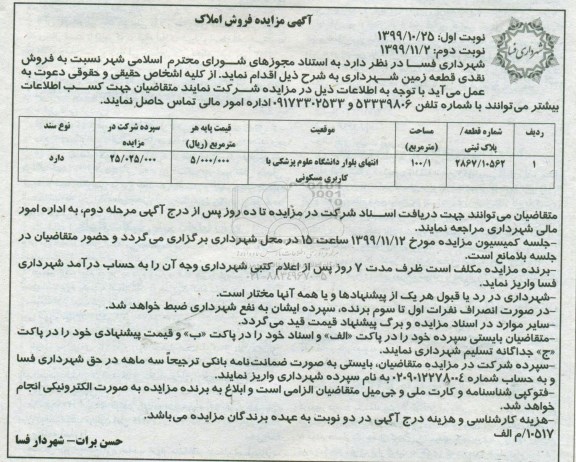 آگهی مزایده فروش املاک
شهرداری فسا
نوبت اول: ۱۳۹۹/۱۰/۲۵
نوبت دوم: ۱۳۹۹/۱۱/۲
شهرداری فسا در نظر دارد به استناد مجوزهای شورای محترم اسلامی شهر نسبت به فروش
نقدی قطعه زمین شهرداری به شرح ذیل اقدام نماید. از کلیه اشخاص حقیقی و حقوقی دعوت به
عمل می‌آید با توجه به اطلاعات ذیل در مزایده شرکت نمایند متقاضیان جهت کسب اطلاعات
بیشتر می‌توانند با شماره تلفن ۵۳۳۳۹۸۰۶ و ۰۹۱۷۳۳۰۲۵۳۳ اداره امور مالی تماس حاصل نمایند.
ردیف شماره قطعه/ پلاک ثبتی مساحت (مترمربع) موقعیت قیمت پایه هر مترمربع (ریال) سپرده شرکت در مزایده نوع سند
۱ ۲۸۶۷/۱۰۵۶۲ ۱۰۰/۱ انتهای بلوار دانشگاه علوم پزشکی با کاربری مسکونی ۵/۰۰۰/۰۰۰ ۲۵/۰۲۵/۰۰۰ دارد
متقاضیان می‌توانند جهت دریافت اسناد شرکت در مزایده تا ده روز پس از درج آگهی مرحله دوم، به اداره امور
مالی شهرداری مراجعه نمایند.
-جلسه کمیسیون مزایده مورخ ۱۳۹۹/۱۱/۱۲ ساعت ۱۵ در محل شهرداری برگزاری می‌گردد و حضور متقاضیان در
جلسه بلامانع است.
-برنده مزایده مکلف است ظرف مدت ۷ روز پس از اعلام کتبی شهرداری وجه آن را به حساب درآمد شهرداری
فسا واریز نماید.
-شهرداری در رد یا قبول هر یک از پیشنهادها و یا همه آنها مختار است.
-در صورت انصراف نفرات اول تا سوم برنده، سپرده ایشان به نفع شهرداری ضبط خواهد شد.
-سایر موارد در اسناد مزایده و برگ پیشنهاد قیمت قید می‌گردد.
-متقاضیان بایستی سپرده خود را در پاکت «الف» و اسناد خود را در پاکت «ب» و قیمت پیشنهادی خود را در پاکت
«ج» جداگانه تسلیم شهرداری نمایند.
-سپرده شرکت در مزایده متقاضیان، بایستی به صورت ضمانت‌نامه بانکی ترجیحاً سه ماهه در حق شهرداری فسا
و به حساب شماره ۰۲۰۹۰۱۲۲۷۸۰۰۴ به نام سپرده شهرداری واریز نمایند.
-فتوکپی شناسنامه و کارت ملی و جی‌میل متقاضیان الزامی است و ابلاغ به برنده مزایده به صورت الکترونیکی انجام
خواهد شد.
-هزینه کارشناسی و هزینه درج آگهی در دو نوبت به عهده برندگان مزایده می‌باشد.
۱۰۵۱۷/م الف
حسن برات- شهردار فسا